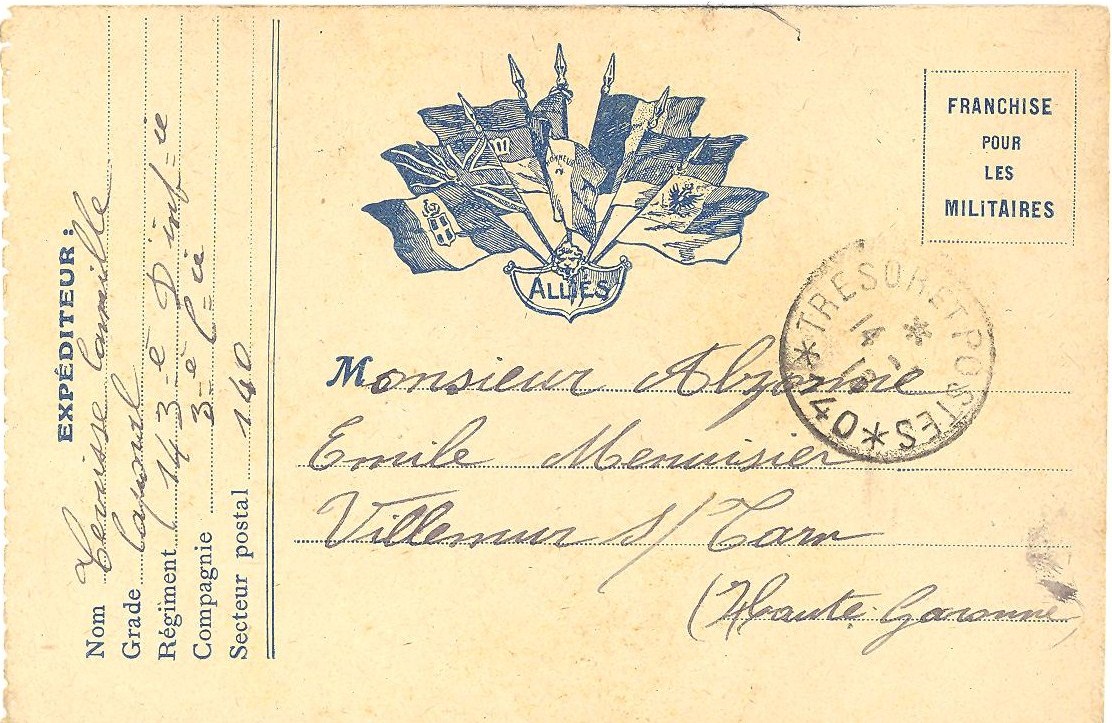 EXPÉDITEUR :
Nom Camille
Grade Caporal
Régiment 143-e D'inf-ie
Compagnie 3-e C-ie
Secteur postal 140
HONNEUR
ALLIÉS
FRANCHISE
POUR
LES
MILITAIRES
*TRESOR ET POSTES*
14
16
*
140
Monsieur
Emile Menuisier
Villemur s/ Tarn
(Haute-Garonne)